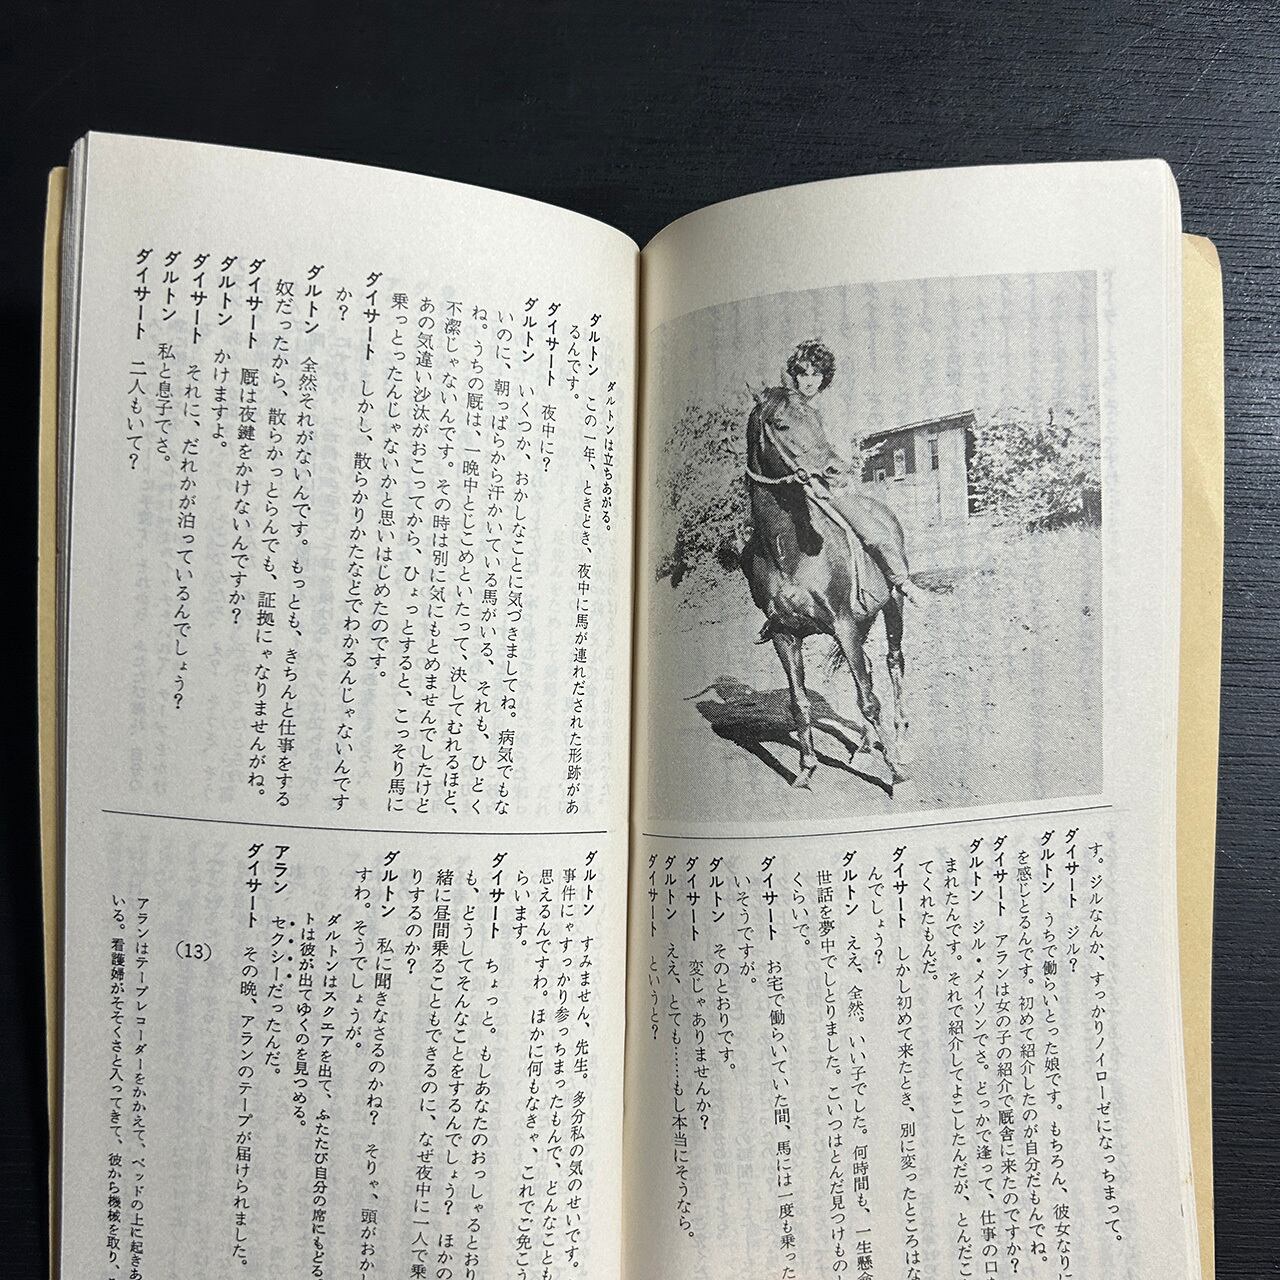 す。ジルなんか、すっかりノイローゼになっちまって。
ダイサート　ジル?
ダルトン　うちで働らいとった娘です。もちろん、彼女なりに
を感じとるんです。初めて紹介したのが自分だもんでね。
ダイサート　アランは女の子の紹介で厩舎に来たのですか?
ダルトン　ジル・メイソンでさ。どっかで逢って、仕事の口
まれたんです。それで紹介してよこしたんだが、とんだこ
てくれたもんだ。
ダイサート　しかし初めて来たとき、別に変ったところはな
んでしょう?
ダルトン　ええ、全然。いい子でした。何時間も、一生懸命
世話を夢中でしとりました。こいつはとんだ見つけもの
くらいで。
ダイサート　お宅で働らいていた間、馬には一度も乗った
いそうですが。
ダルトン　そのとおりです。
ダイサート　変じゃありませんか?
ダルトン　ええ、とても……もし本当にそうなら。
ダイサート　というと?
ダルトンは立ちあがる。
ダルトン　この一年、ときどき、夜中に馬が連れだされた形跡があ
るんです。
ダイサート　夜中に?
ダルトン　いくつか、おかしなことに気づきましてね。病気でもな
いのに、朝っぱらから汗かいている馬がいる、それも、ひどく
ね。うちの厩は、一晩中とじこめといたって、決してむれるほど、
不潔じゃないんです。その時は別に気にもとめませんでしたけど
あの気違い沙汰がおこってから、ひょっとすると、こっそり馬に
乗っとったんじゃないかと思いはじめたのです。
ダイサート　しかし、散らかりかたなどでわかるんじゃないんです
か?
ダルトン　全然それがないんです。もっとも、きちんと仕事をする
奴だったから、散らかっとらんでも、証拠にゃなりませんがね。
ダイサート　厩は夜鍵をかけないんですか?
ダルトン　かけますよ。
ダイサート　それに、だれかが泊っているんでしょう?
ダルトン　私と息子でさ。
ダイサート　二人もいて?
ダルトン　すみません、先生。多分私の気のせいです。
事件にゃすっかり参っちまったもんで、どんなことも
思えるんですわ。ほかに何もなきゃ、これでご免こう
らいます。
ダイサート　ちょっと。もしあなたのおっしゃるとおり
も、どうしてそんなことをするんでしょう?　ほかの
緒に昼間乗ることもできるのに、なぜ夜中に一人で乗
りするのか?
ダルトン　私に聞きなさるのかね?　そりゃ、頭がおかし
すわ。そうでしょうが。
ダルトンはスクエアを出て、ふたたび自分の席にもどる。
トは彼が出てゆくのを見つめる。
アラン　セクシーだったんだ。
ダイサート　その晩、アランのテープが届けられました。
(13)
アランはテープレコーダーをかかえて、ベッドの上に起きあ
いる。看護婦がそそくさと入ってきて、彼から機械を取り、